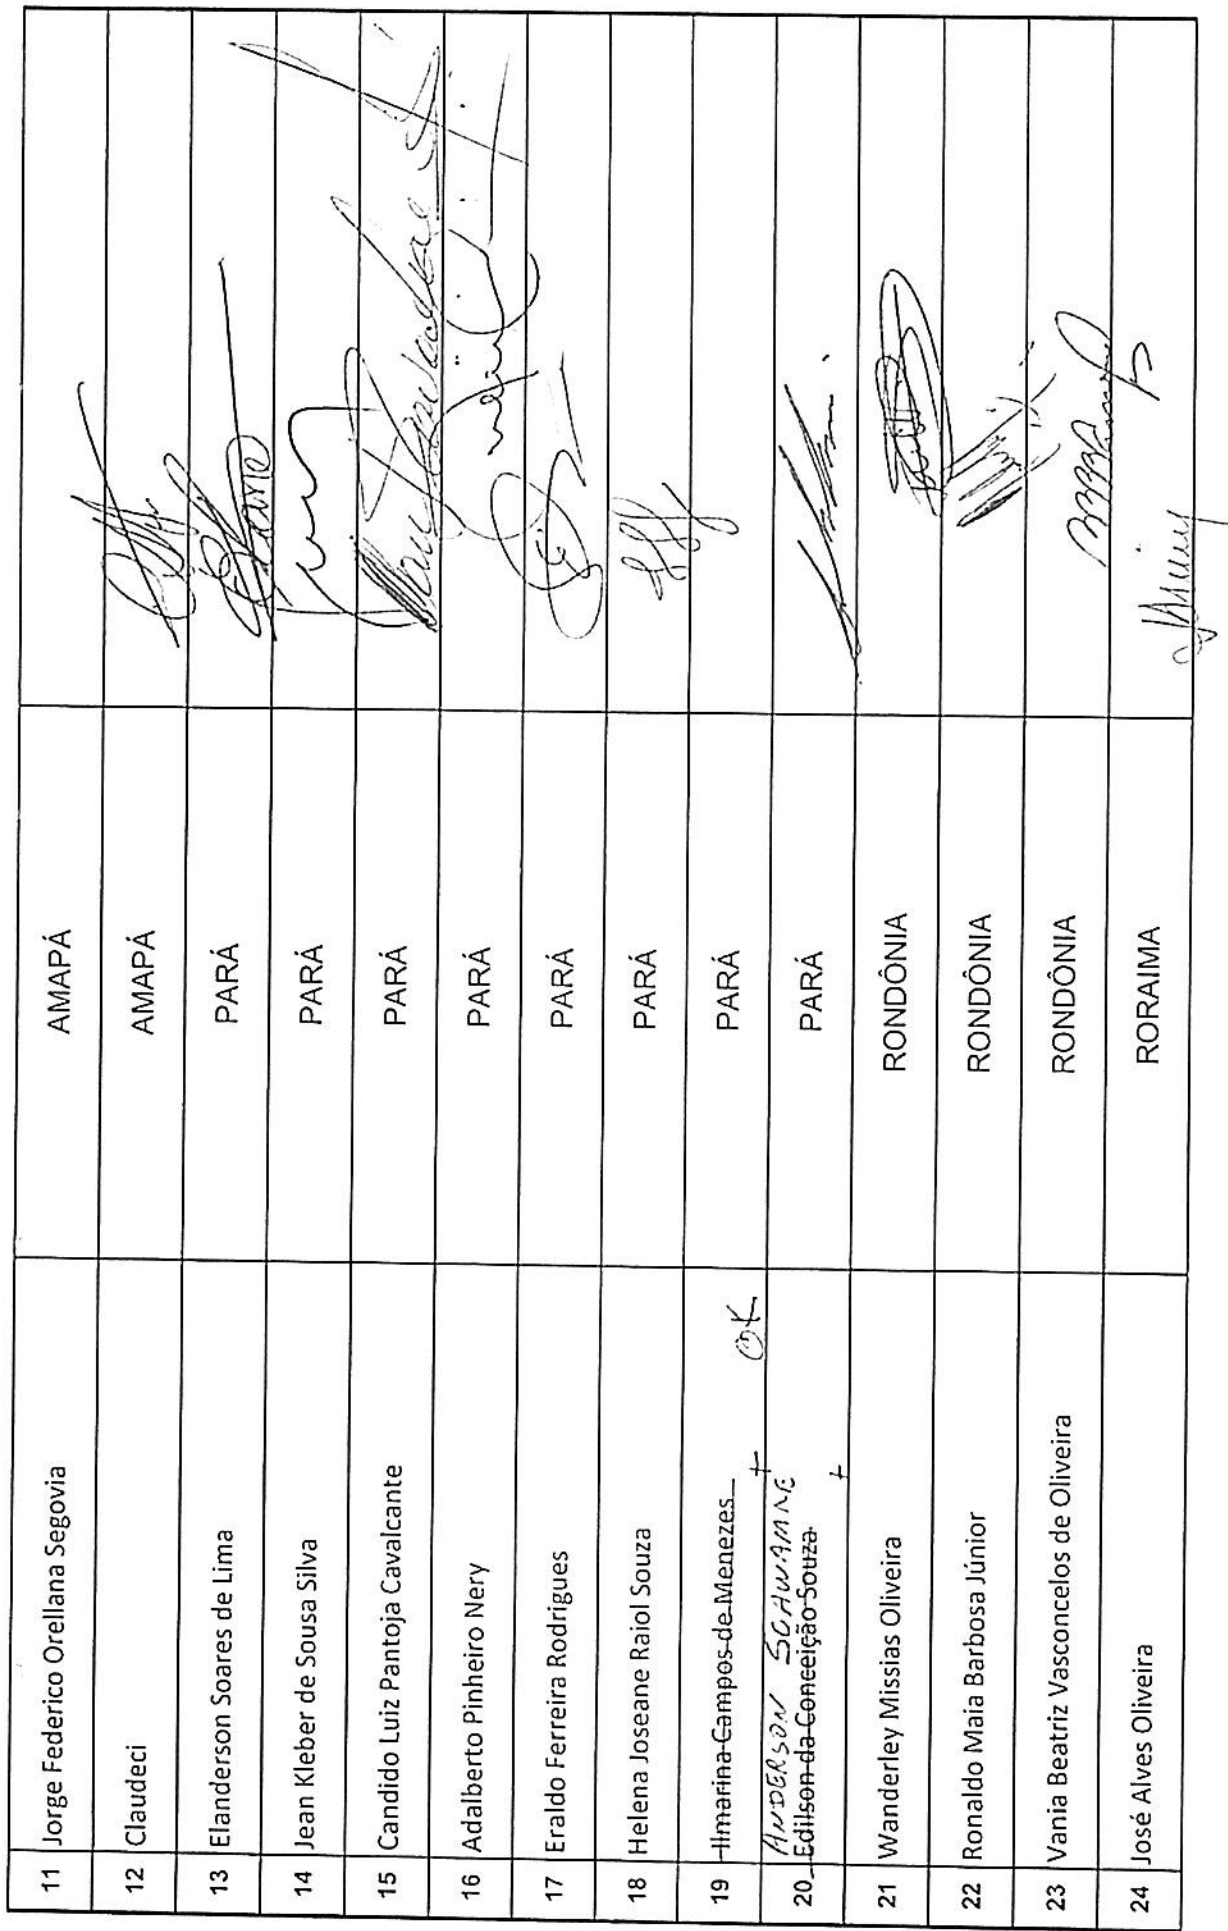 11 Jorge Federico Orellana Segovia AMAPÁ
12 Claudeci AMAPÁ
13 Elanderson Soares de Lima PARÁ
14 Jean Kleber de Sousa Silva PARÁ
15 Candido Luiz Pantoja Cavalcante PARÁ
16 Adalberto Pinheiro Nery PARÁ
17 Eraldo Ferreira Rodrigues PARÁ
18 Helena Joseane Raiol Souza PARÁ
19 Ilmarina Campos de Menezes OK PARÁ
ANDERSON SCHWAMNE
20 Edilson da Conceição Souza PARÁ
21 Wanderley Missias Oliveira RONDÔNIA
22 Ronaldo Maia Barbosa Júnior RONDÔNIA
23 Vania Beatriz Vasconcelos de Oliveira RONDÔNIA
24 José Alves Oliveira RORAIMA